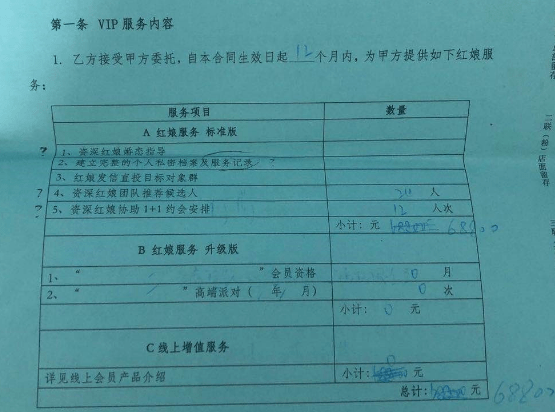 第一条 VIP 服务内容
1. 乙方接受甲方委托，自本合同生效日起 12 个月内，为甲方提供如下红娘服
务：
服务项目 数量
A 红娘服务 标准版
? 1、资深红娘婚恋指导
2、建立完整的个人私密档案及服务记录
3、红娘发信直投目标对象群
? 4、资深红娘团队推荐候选人 人
? 5、资深红娘协助 1+1 约会安排 12 人次
小计： 元 68800
B 红娘服务 升级版
1、“ ”会员资格 0 月
2、“ ”高端派对（ 年/ 月） 0 次
小计： 0 元
C 线上增值服务
详见线上会员产品介绍 小计： 0 元
总计： 元 68800
二联（粉）店面留存